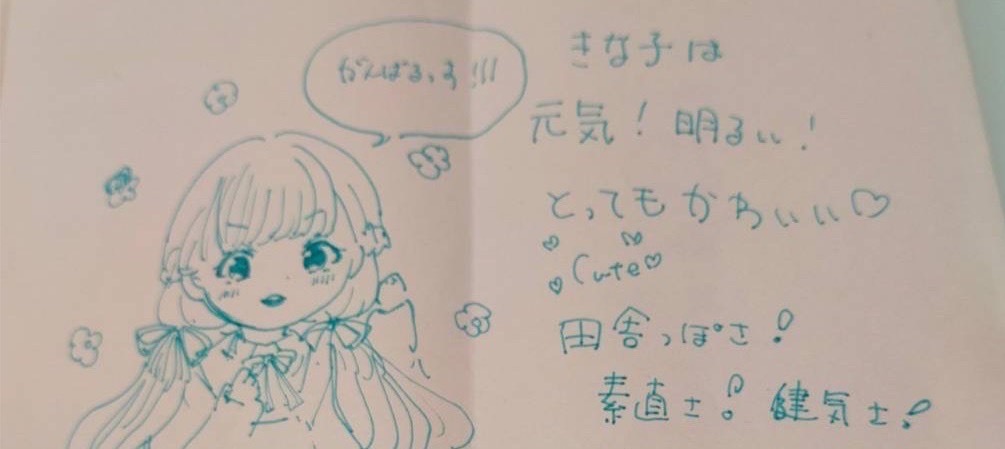 がんばるっす!!!
きな子は
元気！明るい！
とってもかわいい♡
Cute
田舎っぽさ！
素直さ！健気さ！